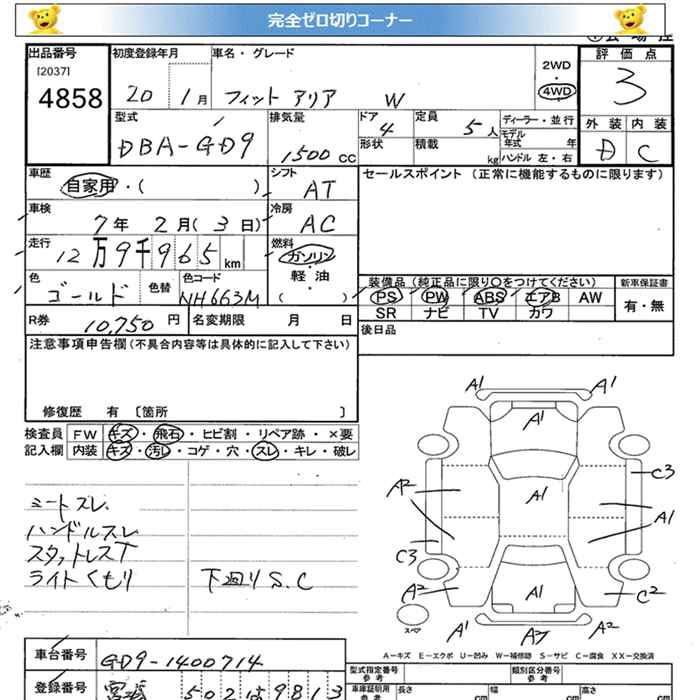 完全ゼロ切りコーナー
出品番号 初度登録年月 車名・グレード 評価点
[2037] 4858 20 1月 フィット アリア W 2WD 4WD 3
型式 排気量 ドア 4 定員 5人 ディーラー・並行 外装 内装
DBA-GD9 1500cc 形状 積載 kg モデル年式 年 D C
ハンドル 左・右
車歴 自家用・( ) シフト AT セールスポイント (正常に機能するものに限ります)
車検 7年 2月(3日) 冷房 AC
走行 12万9千965km 燃料 ガソリン・軽油 ( )
色 ゴールド 色替 色コード NH663M
装備品 (純正品に限り○をつけてください) 新車保証書
PS PW ABS エアB AW 有・無
SR ナビ TV カワ
R券 10,750円 名変期限 月 日 後日品
注意事項申告欄(不具合内容等は具体的に記入して下さい)
修復歴 有 〔箇所 〕
検査員 FW キズ・飛石・ヒビ割・リペア跡・×要
記入欄 内装 キズ・汚レ・コゲ・穴・スレ・キレ・破レ
シートスレ
ハンドルスレ
スタットレスT
ライトくもり 下廻りS.C
A1 A1
A1
C3
A2 A1 A1
C3
A2 A1 C2
スペア
A1 A2
A-キズ E-エクボ U-凹み W-補修跡 S-サビ C-腐食 XX-交換済
車台番号 GD9-1400714
型式指定番号 参考 類別区分番号 参考
登録番号 宮城 502 9813
車庫証明用 参考 長さ cm 幅 cm 高さ cm